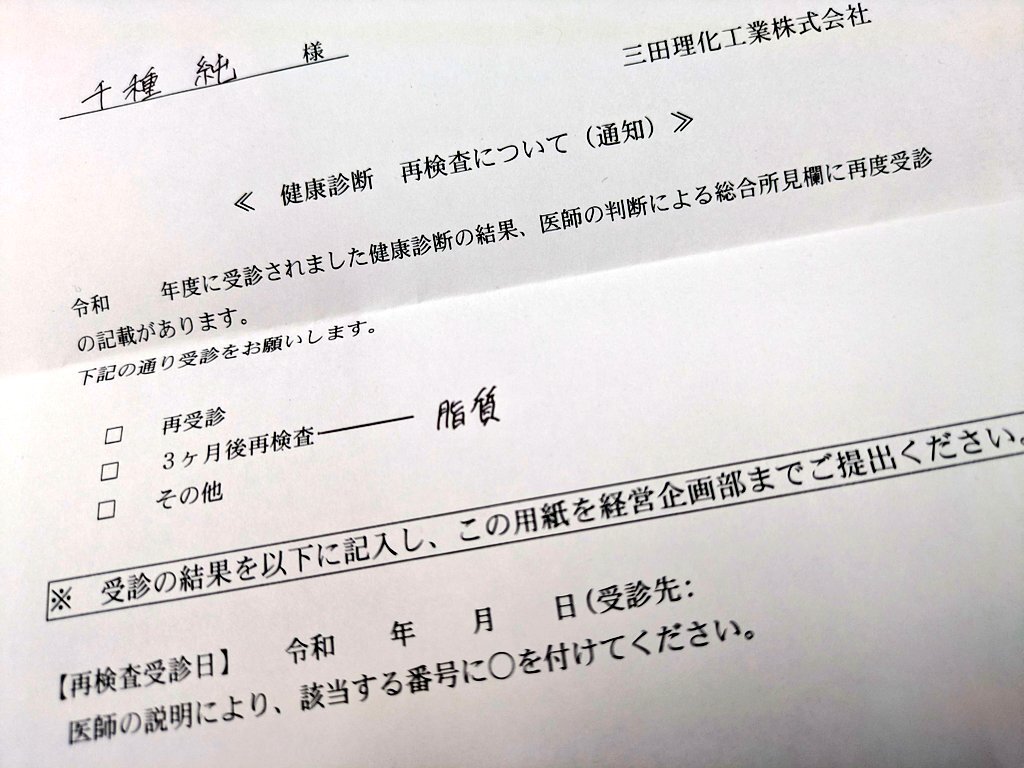 千種 純 様
三田理化工業株式会社
≪ 健康診断 再検査について（通知）≫
令和 年度に受診されました健康診断の結果、医師の判断による総合所見欄に再度受診
の記載があります。
下記の通り受診をお願いします。
□ 再受診
□ 3ヶ月後再検査 ――― 脂質
□ その他
※ 受診の結果を以下に記入し、この用紙を経営企画部までご提出ください。
【再検査受診日】 令和 年 月 日（受診先：
医師の説明により、該当する番号に○を付けてください。